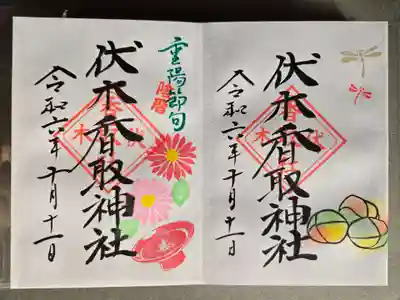 伏木香取神社
令和六年十月十一日
重陽節句
陰暦
伏木香取神社
令和六年十月十一日